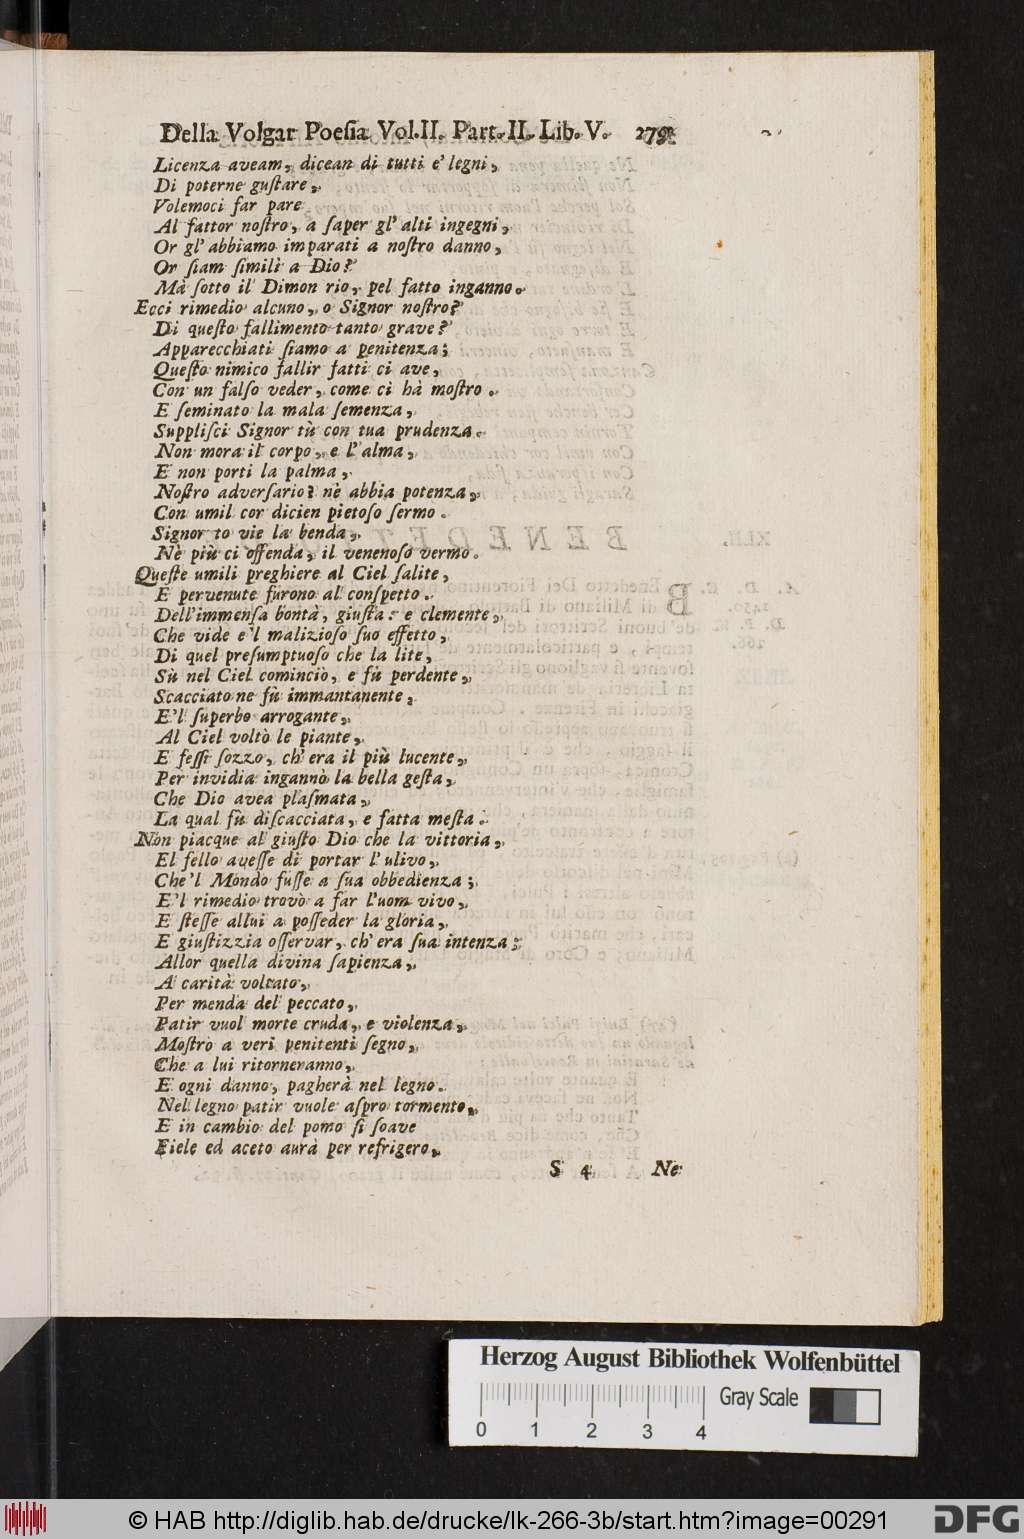 Della Volgar Poeſia Vol.II. Part.II. Lib.V. 279.
Licenza aveam, dicean di tutti e' legni,
Di poterne guſtare,
Volemoci far pare
Al fattor noſtro, a ſaper gl' alti ingegni,
Or gl' abbiamo imparati a noſtro danno,
Or ſiam ſimili a Dio?
Mà ſotto il Dimon rio, pel fatto inganno.
Ecci rimedio alcuno, o Signor noſtro?
Di queſto fallimento tanto grave?
Apparecchiati ſiamo a penitenza;
Queſto nimico fallir fatti ci ave,
Con un falſo veder, come ci hà moſtro.
E ſeminato la mala ſemenza,
Suppliſci Signor tù con tua prudenza.
Non mora il corpo, e l' alma,
E non porti la palma,
Noſtro adverſario? nè abbia potenza,
Con umil cor dicien pietoſo ſermo.
Signor to vie la benda,
Nè più ci offenda, il venenoſo vermo.
Queſte umili preghiere al Ciel ſalite,
E pervenute furono al conſpetto.
Dell'immenſa bontà, giuſta: e clemente,
Che vide e'l malizioſo ſuo effetto,
Di quel preſumptuoſo che la lite,
Sù nel Ciel cominciò, e fù perdente,
Scacciato ne fù immantanente,
E'l ſuperbo arrogante,
Al Ciel voltò le piante,
E feſſi ſozzo, ch' era il più lucente,
Per invidia ingannò la bella geſta,
Che Dio avea plaſmata,
La qual fù diſcacciata, e fatta meſta.
Non piacque al giuſto Dio che la vittoria,
El fello aveſſe di portar l' ulivo,
Che'l Mondo fuſſe a ſua obbedienza;
E'l rimedio trovò a far l'uom vivo,
E ſteſſe allui a poſſeder la gloria,
E giuſtizzia oſſervar, ch' era ſua intenza:
Allor quella divina ſapienza,
A carità voltato,
Per menda del peccato,
Patir vuol morte cruda, e violenza,
Moſtrò a veri penitenti ſegno,
Che a lui ritorneranno,
E ogni danno, pagherà nel legno.
Nel legno patir vuole aſpro tormento,
E in cambio del pomo ſi ſoave
Fiele ed aceto aurà per refrigero,
S 4 Ne
Herzog August Bibliothek Wolfenbüttel
0 1 2 3 4
Gray Scale
© HAB http://diglib.hab.de/drucke/lk-266-3b/start.htm?image=00291
DFG